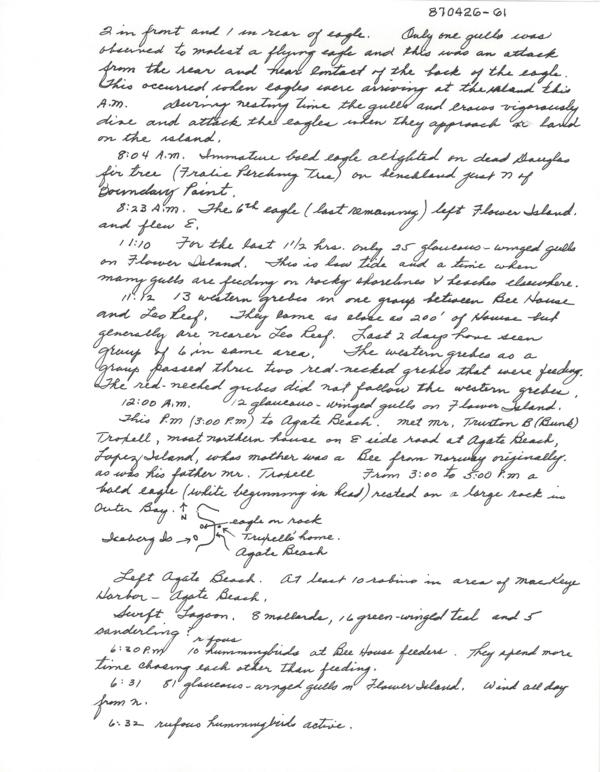 870426-61
2 in front and 1 in rear of eagle. Only one gull was
observed to molest a flying eagle and this was an attack
from the rear and near contact of the back of the eagle.
This occurred when eagles were arriving at the island this
A.M. During nesting time the gulls and crows vigorously
dive and attack the eagles when they approach or land
on the island.
8:04 A.M. Immature bald eagle alighted on dead Douglas
fir tree (Fralic Perching Tree) on benchland just N of
Boundary Point.
8:23 A.M. The 6th eagle (last remaining) left Flower Island.
and flew E.
11:10 For the last 1 1/2 hrs. only 25 glaucous-winged gulls
on Flower Island. This is low tide and a time when
many gulls are feeding on rocky shorelines & beaches elsewhere.
11:12 13 western grebes in one group between Bee House
and Leo Reef. They came as close as 200' of House but
generally are nearer Leo Reef. Last 2 days have seen
group of 6 in same area. The western grebes as a
group passed thru two red-necked grebes that were feeding.
The red-necked grebes did not follow the western grebes.
12:00 A.M. 12 glaucous-winged gulls on Flower Island.
This P.M (3:00 P.M) to Agate Beach. met Mr. Truston B (Bunk)
Troxell, most northern house on E side road at Agate Beach,
Lopez Island, whos mother was a Bee from Norway originally.
as was his father Mr. Troxell From 3:00 to 5:00 P.M a
bald eagle (white beginning in head) rested on a large rock in
Outer Bay.
N
eagle on rock
Iceberg Is
Troxell's home.
Agate Beach
Left Agate Beach. At least 10 robins in area of MacKaye
Harbor - Agate Beach.
Swift Lagoon. 8 mallards, 16 green-winged teal and 5
sanderling?
rufous
6:30 P.M 10 hummingbirds at Bee House feeders. They spend more
time chasing each other than feeding.
6:31 81 glaucous-winged gulls on Flower Island. Wind all day
from N.
6:32 rufous hummingbirds active.